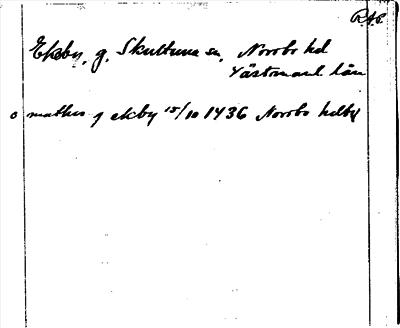 R.A.
Ekeby, g. Skultuna sn, Norrbo hd
Västmanl län
o mathis j ekby 15/10 1436 Norrbo hdby